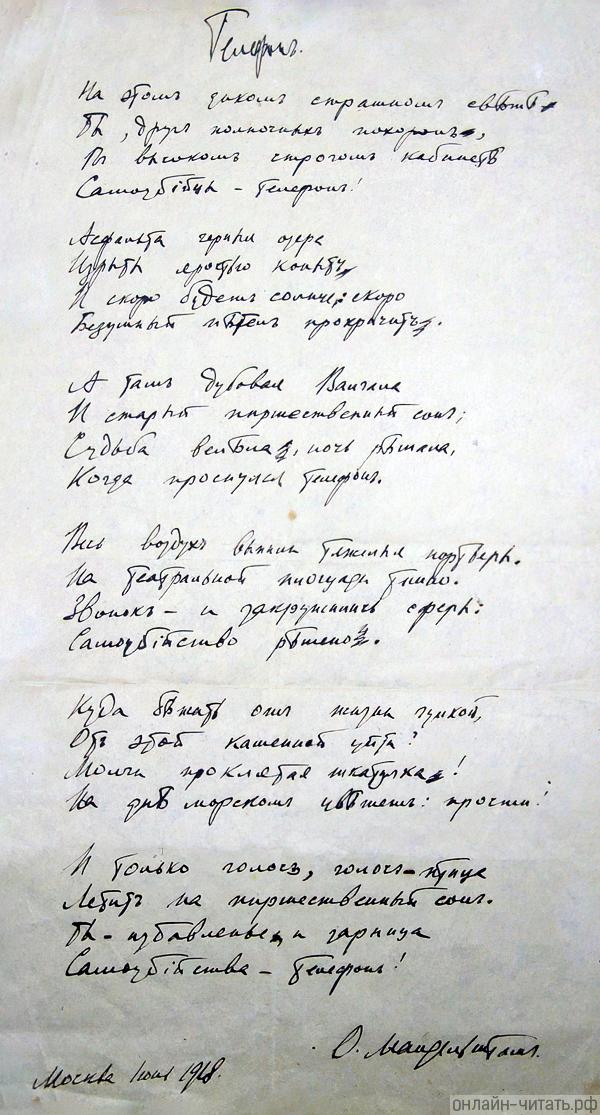 Телефонъ.
На этомъ дикомъ страшномъ свѣтѣ
Ты, другъ полночныхъ похоронъ,
Въ высокомъ строгомъ кабинетѣ
Самоубійцы – телефонъ!
Асфальта черныя озера
Изрыты яростью копытъ,
И скоро будетъ солнце: скоро
Безумный пѣтелъ прокричитъ.
А тамъ дубовая Валгалла
И старый пиршественный сонъ;
Судьба велѣла, ночь рѣшала,
Когда проснулся телефонъ.
Весь воздухъ выпили тяжелыя портьеры.
На театральной площади темно.
Звонокъ – и закружились сферы:
Самоубійство рѣшено.
Куда бѣжать отъ жизни гулкой,
Отъ этой каменной уйти?
Молчи проклятая шкатулка!
На днѣ морскомъ цвѣтетъ: прости!
И только голосъ, голосъ-птица
Летитъ на пиршественный сонъ.
Ты – избавленье и зарница
Самоубійства – телефонъ!
О. Мандельштамъ.
Москва Іюнь 1918.
онлайн-читать.рф